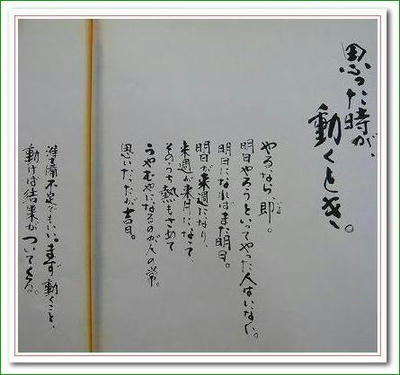 思った時が、
動くとき。
やるなら、即。
明日やろうといってやった人はいない。
明日になればまた明日。
明日が来週になり、
来週が来月になって
そのうち熱もさめて
うやむやになるのが人の常。
思いたったが吉日。
準備不足でもいい。まず動くこと、
動けば結果がついてくる。